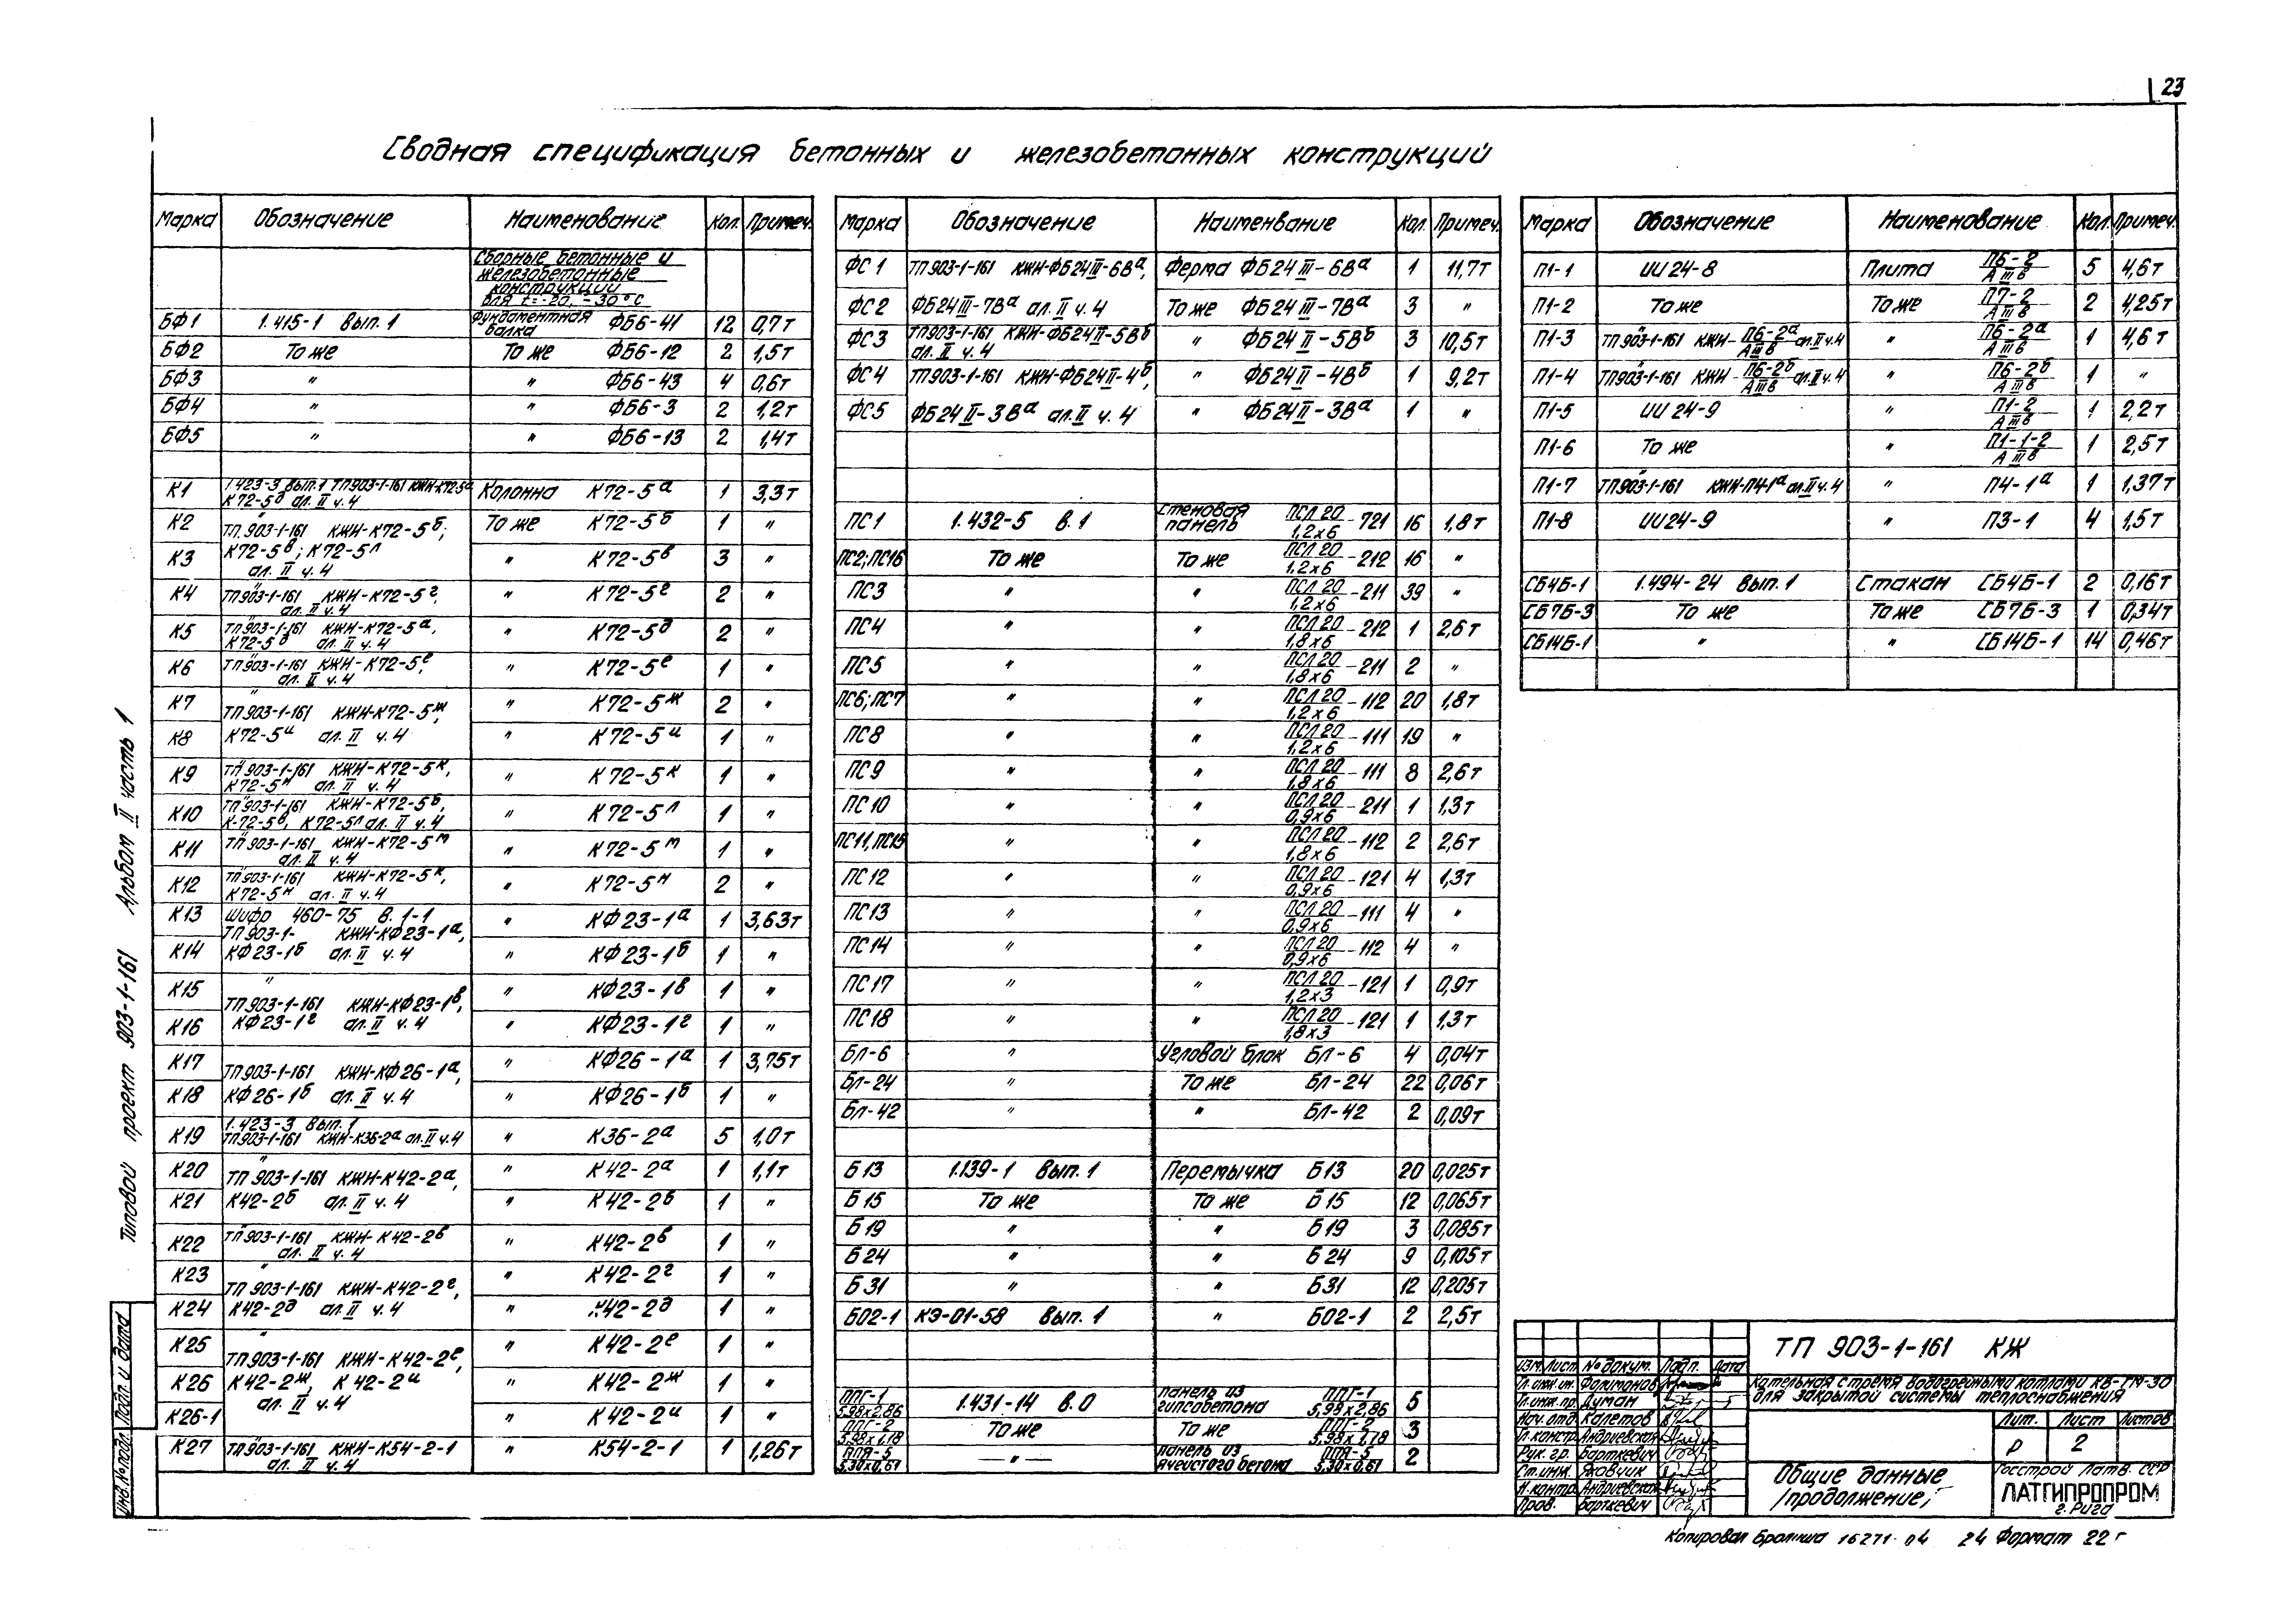 23
Сводная спецификация бетонных и железобетонных конструкций
Марка Обозначение Наименование Кол. Примеч.
Сборные бетонные и
железобетонные
конструкции
для t=-20, -30°С
БФ1 1.415-1 вып.1 Фундаментная балка ФБ6-41 12 0,7т
БФ2 То же То же ФБ6-12 2 1,5т
БФ3 " " ФБ6-43 4 0,6т
БФ4 " " ФБ6-3 2 1,2т
БФ5 " " ФБ6-13 2 1,4т
К1 1.423-3 вып.1 ТП903-1-161 КЖН-К72-5а К72-5д ал. II ч.4 Колонна К72-5а 1 3,3т
К2 " ТП.903-1-161 КЖН-К72-5б; То же К72-5б 1 "
К3 К72-5в; К72-5л ал. II ч.4 " К72-5в 3 "
К4 " ТП903-1-161 КЖН-К72-5г, ал. II ч.4 " К72-5г 2 "
К5 " ТП903-1-161 КЖН-К72-5а, К72-5д ал. II ч.4 " К72-5д 2 "
К6 " ТП903-1-161 КЖН-К72-5е, ал. II ч.4 " К72-5е 1 "
К7 " ТП903-1-161 КЖН-К72-5ж, " К72-5ж 2 "
К8 К72-5и ал. II ч.4 " К72-5и 1 "
К9 " ТП903-1-161 КЖН-К72-5к, К72-5н ал. II ч.4 " К72-5к 1 "
К10 " ТП903-1-161 КЖН-К72-5б, К-72-5в, К72-5л ал. II ч.4 " К72-5л 1 "
К11 " ТП903-1-161 КЖН-К72-5м ал. II ч.4 " К72-5м 1 "
К12 " ТП903-1-161 КЖН-К72-5к, К72-5н ал. II ч.4 " К72-5н 2 "
К13 Шифр 460-75 в.1-1 ТП903-1- КЖН-КФ23-1а, " КФ23-1а 1 3,63т
К14 КФ23-1б ал. II ч.4 " КФ23-1б 1 "
К15 " ТП903-1-161 КЖН-КФ23-1в, " КФ23-1в 1 "
К16 КФ23-1г ал. II ч.4 " КФ23-1г 1 "
К17 ТП903-1-161 КЖН-КФ26-1а, " КФ26-1а 1 3,75т
К18 КФ26-1б ал. II ч.4 " КФ26-1б 1 "
К19 1.423-3 вып.1 ТП903-1-161 КЖН-К36-2а ал. II ч.4 " К36-2а 5 1,0т
К20 " ТП903-1-161 КЖН-К42-2а, " К42-2а 1 1,1т
К21 К42-2б ал. II ч.4 " К42-2б 1 "
К22 " ТП903-1-161 КЖН-К42-2в ал. II ч.4 " К42-2в 1 "
К23 " ТП903-1-161 КЖН-К42-2г, " К42-2г 1 "
К24 К42-2д ал. II ч.4 " К42-2д 1 "
К25 " ТП903-1-161 КЖН-К42-2е, " К42-2е 1 "
К26 К42-2ж, К42-2и " К42-2ж 1 "
К26-1 ал. II ч.4 " К42-2и 1 "
К27 " ТП903-1-161 КЖН-К54-2-1 ал. II ч.4 " К54-2-1 1 1,26т
Марка Обозначение Наименвание Кол. Примеч.
ФС1 ТП903-1-161 КЖН-ФБ24III-6Ва, Ферма ФБ24III-6Ва 1 11,7т
ФС2 ФБ24III-7Ва ал. II ч.4 То же ФБ24III-7Ва 3 "
ФС3 ТП903-1-161 КЖН-ФБ24II-5Вб ал. II ч.4 " ФБ24II-5Вб 3 10,5т
ФС4 ТП903-1-161 КЖН-ФБ24II-4б, " ФБ24II-4Вб 1 9,2т
ФС5 ФБ24II-3Ва ал. II ч.4 " ФБ24II-3Ва 1 "
ПС1 1.432-5 в.1 Стеновая панель ПСЛ20/1,2х6-721 16 1,8т
ПС2;ПС16 То же То же ПСЛ20/1,2х6-212 16 "
ПС3 " " ПСЛ20/1,2х6-211 39 "
ПС4 " " ПСЛ20/1,8х6-212 1 2,6т
ПС5 " " ПСЛ20/1,8х6-211 2 "
ПС6;ПС7 " " ПСЛ20/1,2х6-112 20 1,8т
ПС8 " " ПСЛ20/1,2х6-111 19 "
ПС9 " " ПСЛ20/1,8х6-111 8 2,6т
ПС10 " " ПСЛ20/0,9х6-211 1 1,3т
ПС11,ПС15 " " ПСЛ20/1,8х6-112 2 2,6т
ПС12 " " ПСЛ20/0,9х6-121 4 1,3т
ПС13 " " ПСЛ20/0,9х6-111 4 "
ПС14 " " ПСЛ20/0,9х6-112 4 "
ПС17 " " ПСЛ20/1,2х3-121 1 0,9т
ПС18 " " ПСЛ20/1,8х3-121 1 1,3т
Бл-6 " Угловой блок Бл-6 4 0,04т
Бл-24 " То же Бл-24 22 0,06т
Бл-42 " " Бл-42 2 0,09т
Б13 1.139-1 вып.1 Перемычка Б13 20 0,025т
Б15 То же То же Б15 12 0,065т
Б19 " " Б19 3 0,085т
Б24 " " Б24 9 0,105т
Б31 " " Б31 12 0,205т
Б02-1 КЭ-01-58 вып.1 " Б02-1 2 2,5т
ППГ-1/5,98х2,86 1.431-14 в.0 панель из гипсобетона ППГ-1/5,98х2,86 5
ППГ-2/5,98х1,18 То же То же ППГ-2/5,98х1,18 3
ППЯ-5/5,30х0,61 — " — панель из ячеистого бетона ППЯ-5/5,30х0,61 2
Марка Обозначение Наименование Кол. Примеч.
П1-1 ИИ24-8 Плита П6-2/АIIIв 5 4,6т
П1-2 То же То же П7-2/АIIIв 2 4,25т
П1-3 ТП903-1-161 КЖН-П6-2а/АIIIв ал. II ч.4 " П6-2а/АIIIв 1 4,6т
П1-4 ТП903-1-161 КЖН-П6-2б/АIIIв ал. II ч.4 " П6-2б/АIIIв 1 "
П1-5 ИИ24-9 " П1-2/АIIIв 1 2,2т
П1-6 То же " П1-1-2/АIIIв 1 2,5т
П1-7 ТП903-1-161 КЖН-П4-1а ал. II ч.4 " П4-1а 1 1,37т
П1-8 ИИ24-9 " П3-1 4 1,5т
СБ4Б-1 1.494-24 вып.1 Стакан СБ4Б-1 2 0,16т
СБ7Б-3 То же То же СБ7Б-3 1 0,34т
СБ14Б-1 " " СБ14Б-1 14 0,46т
Типовой проект 903-1-161 Альбом II часть 1
Инв.№подл. Подп. и дата
ТП 903-1-161 КЖ
Изм. Лист №докум. Подп. Дата
Гл. инж. ин.
Гл. инж. пр. Думан
Нач. отд. Калетов
Гл. констр. Андриевская
Рук. гр. Барткевич
Ст. инж. Яковчик
Н. контр. Андриевская
Пров. Барткевич
Котельная с тремя водогрейными котлами КВ-ГМ-30
для закрытой системы теплоснабжения
Лит. Лист Листов
Р 2
Общие данные
/продолжение/
Госстрой Латв. ССР
ЛАТГИПРОПРОМ
г. Рига
Копировал 16271-04 24 Формат 22г